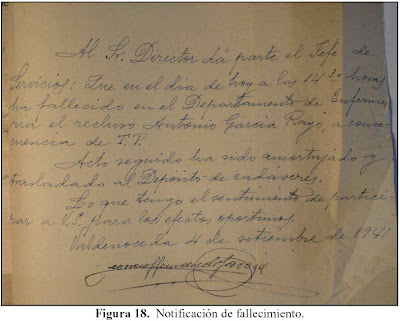 Al Sr. Director dá parte el Jefe de
Servicios: Que en el dia de hoy a las 14'30 horas
ha fallecido en el Departamento de Enferme-
ria el recluso Antonio Garcia Rayo, a conse-
cuencia de T.P.
Acto seguido ha sido amortajado y
trasladado al Depósito de cadáveres.
Lo que tengo el sentimiento de partici-
par a V.S. para los efectos oportunos.
Valdenoceda 4 de setiembre de 1941
Figura 18. Notificación de fallecimiento.